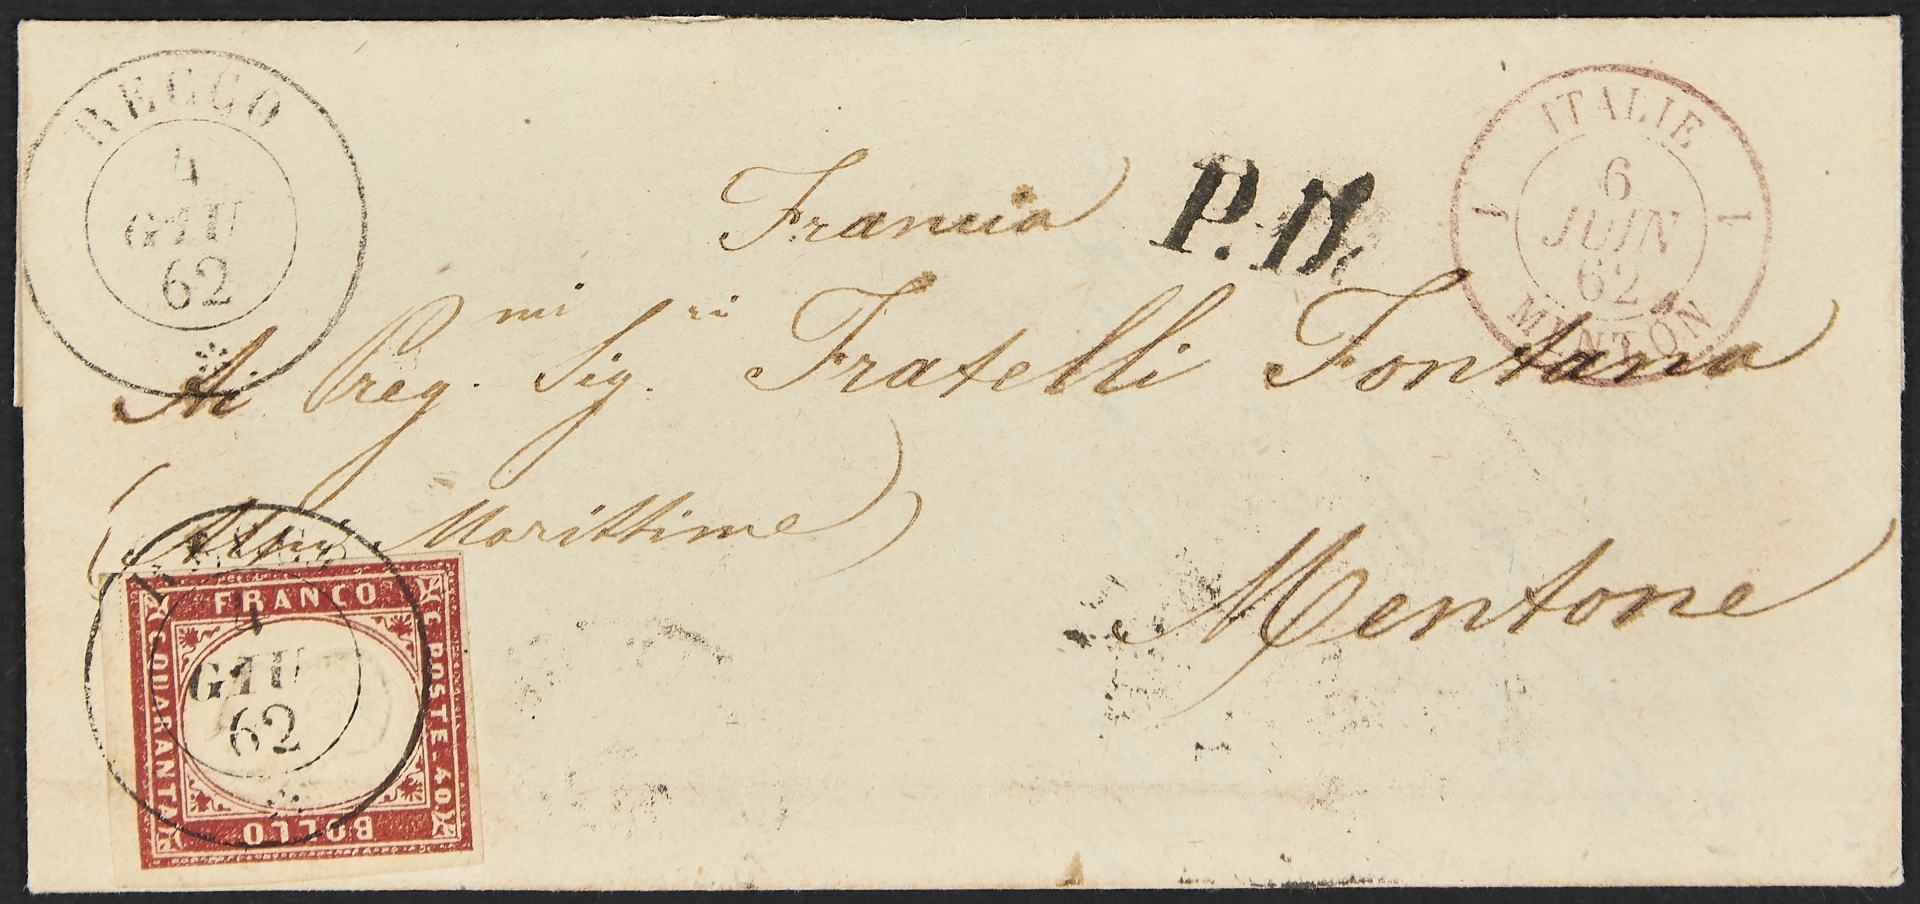 RECCO
4
GIU
62
ITALIE
6
JUIN
62
MENTON
1 1
Francia
P.D.
Ai Preg.mi Sig.ri Fratelli Fontana
(Alpi Marittime)
Mentone
RECCO
4
GIU
62
FRANCO
C. POSTE. 40.
BOLLO
C. QUARANTA